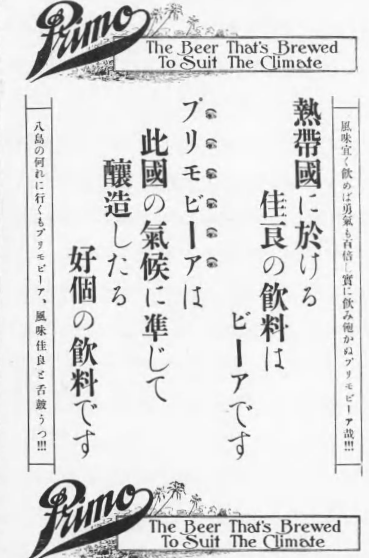 Primo
The Beer That's Brewed
To Suit The Climate
風味宜く飲めば勇氣も百倍し實に飲み飽かぬプリモビーア哉!!!
熱帶國に於ける
佳良の飲料は
ビーアです
プリモビーアは
此國の氣候に準じて
釀造したる
好個の飲料です
八島の何れに行くもプリモビーア、風味佳良と舌皷うつ!!!
Primo
The Beer That's Brewed
To Suit The Climate